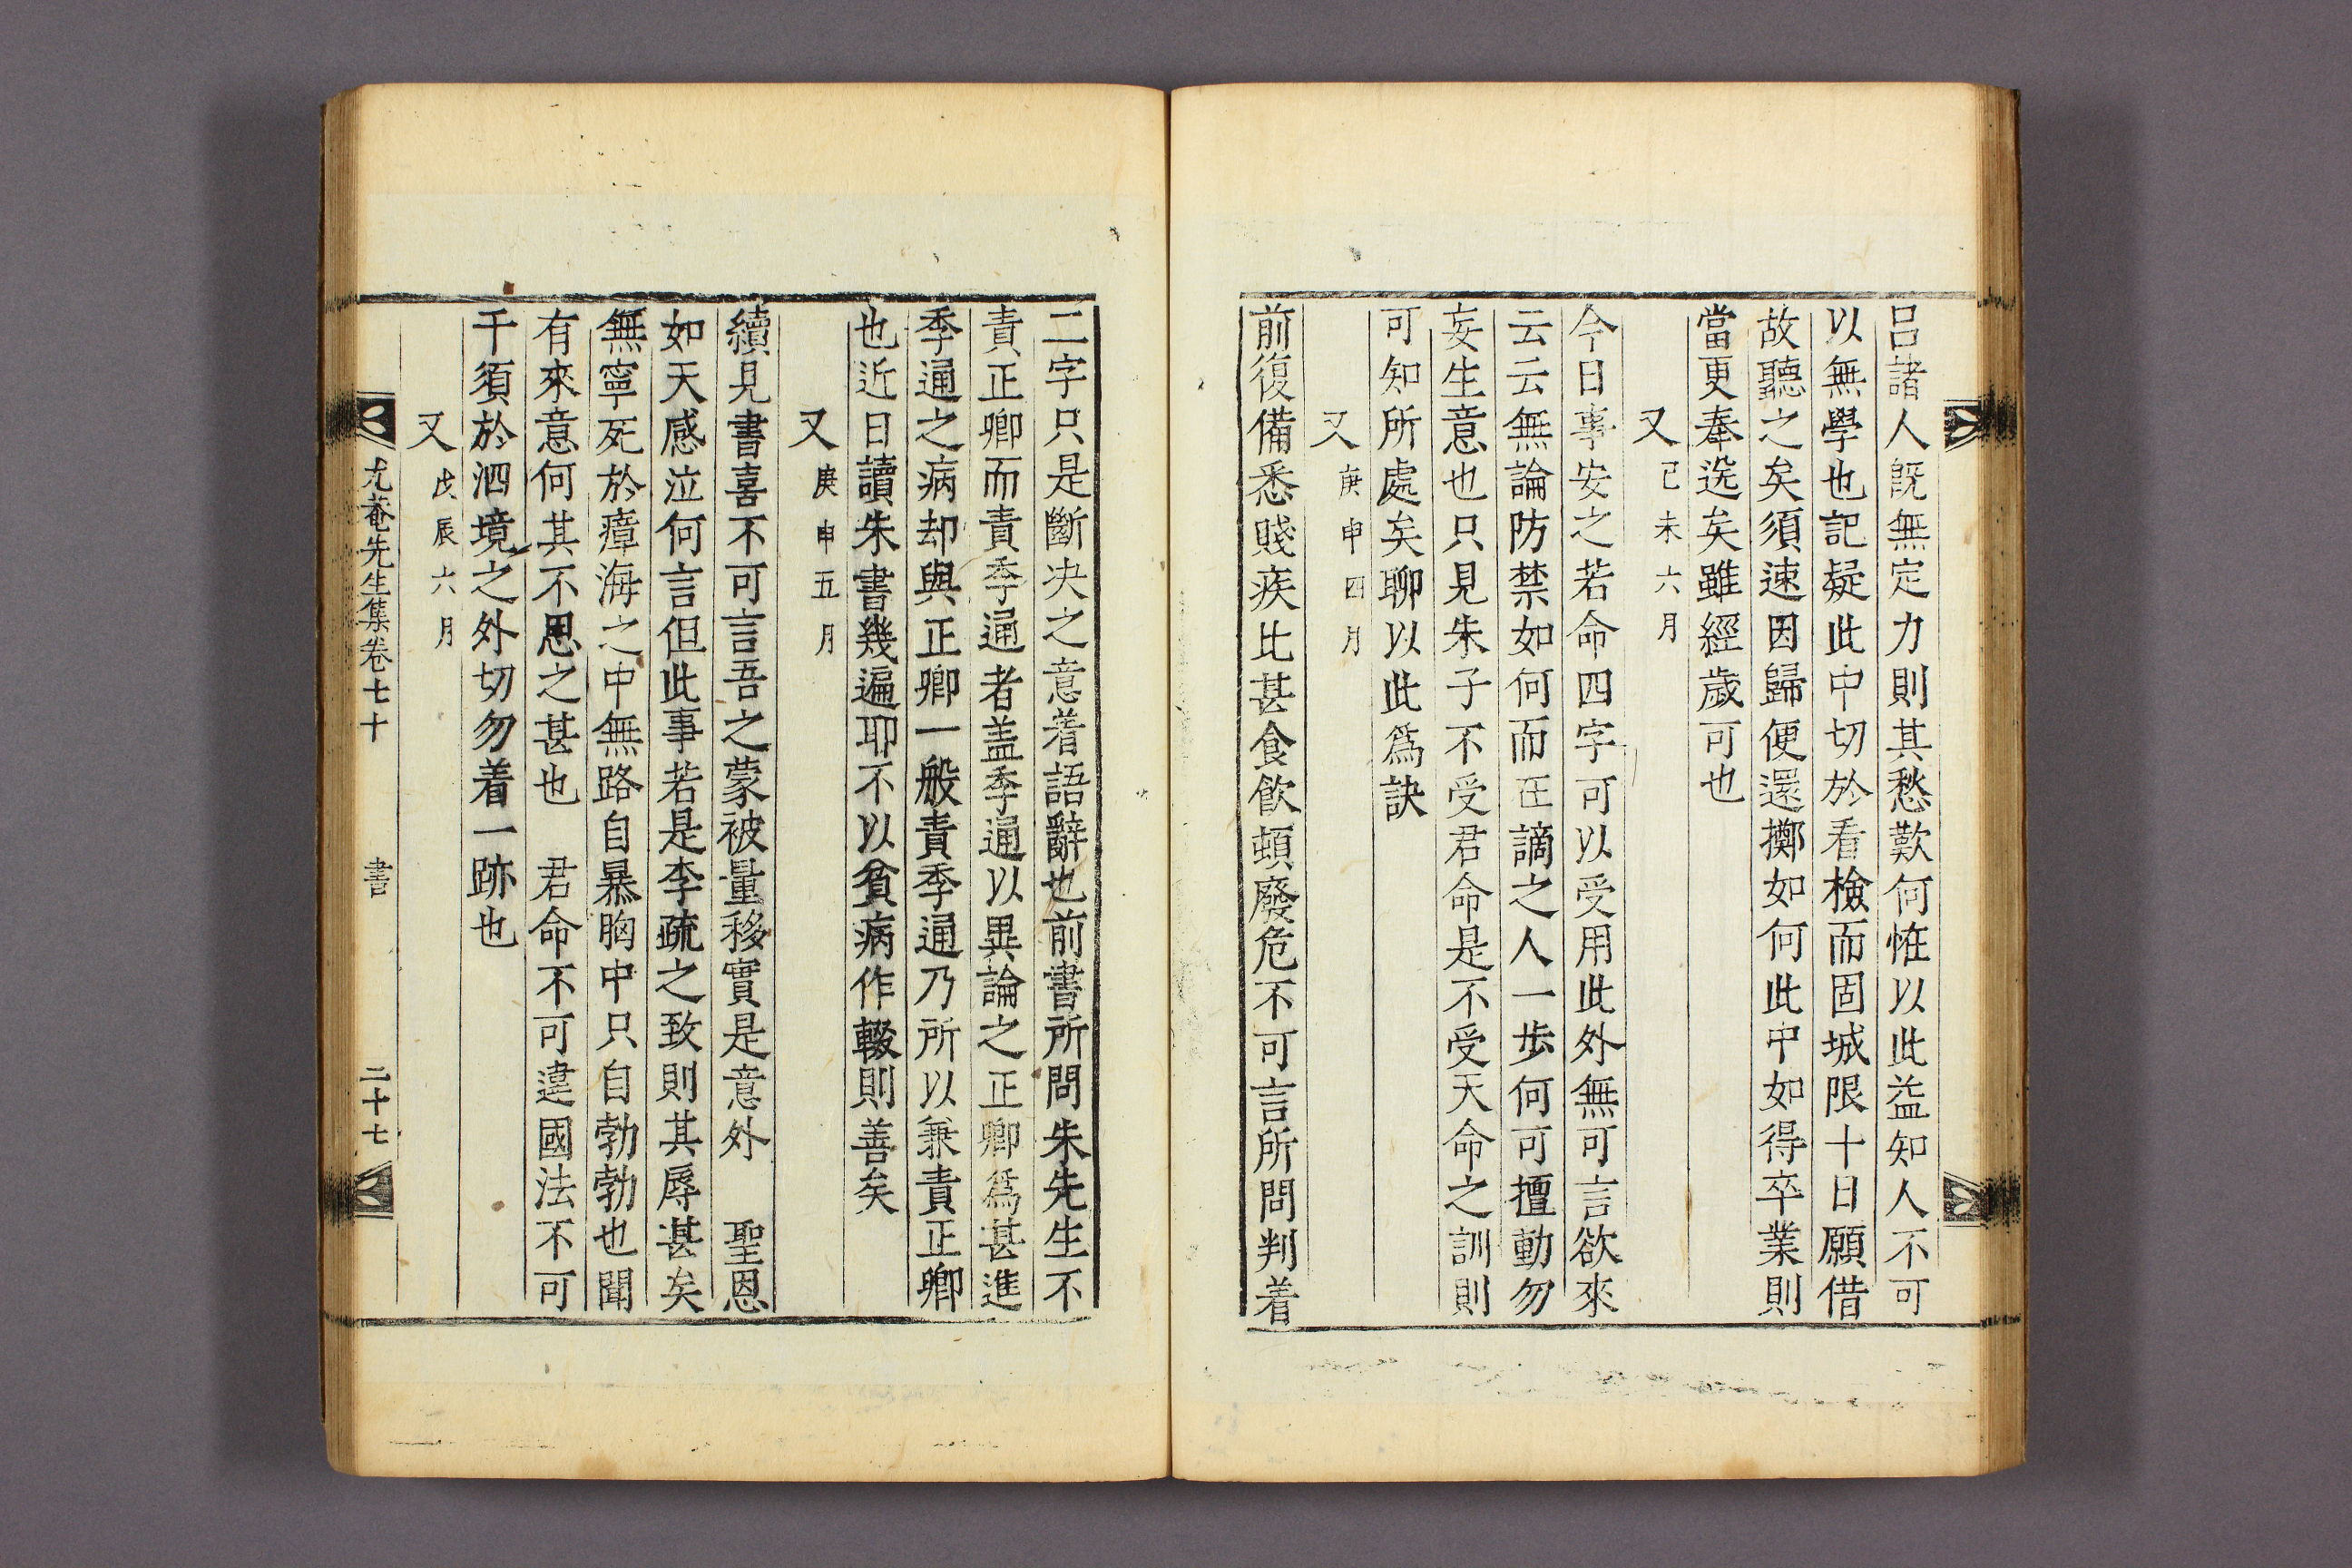 呂諸人旣無定力則其愁歎何恠以此益知人不可
以無學也記疑此中切於看檢而固城限十日願借
故聽之矣須速因歸便還擲如何此中如得卒業則
當更奉送矣雖經歲可也
又己未六月
今日事安之若命四字可以受用此外無可言欲來
云云無論防禁如何而在謫之人一步何可擅動勿
妄生意也只見朱子不受君命是不受天命之訓則
可知所處矣聊以此爲訣
又庚申四月
前復備悉賤疾比甚食飮頓廢危不可言所問判着
二字只是斷决之意着語辭也前書所問朱先生不
責正卿而責季通者盖季通以異論之正卿爲甚進
季通之病却與正卿一般責季通乃所以兼責正卿
也近日讀朱書幾遍耶不以貧病作輟則善矣
又庚申五月
續見書喜不可言吾之蒙被量移實是意外 聖恩
如天感泣何言但此事若是李疏之致則其辱甚矣
無寧死於瘴海之中無路自暴胸中只自勃勃也聞
有來意何其不思之甚也 君命不可違國法不可
干須於泗境之外切勿着一跡也
又戊辰六月
尤菴先生集卷七十 書 二十七